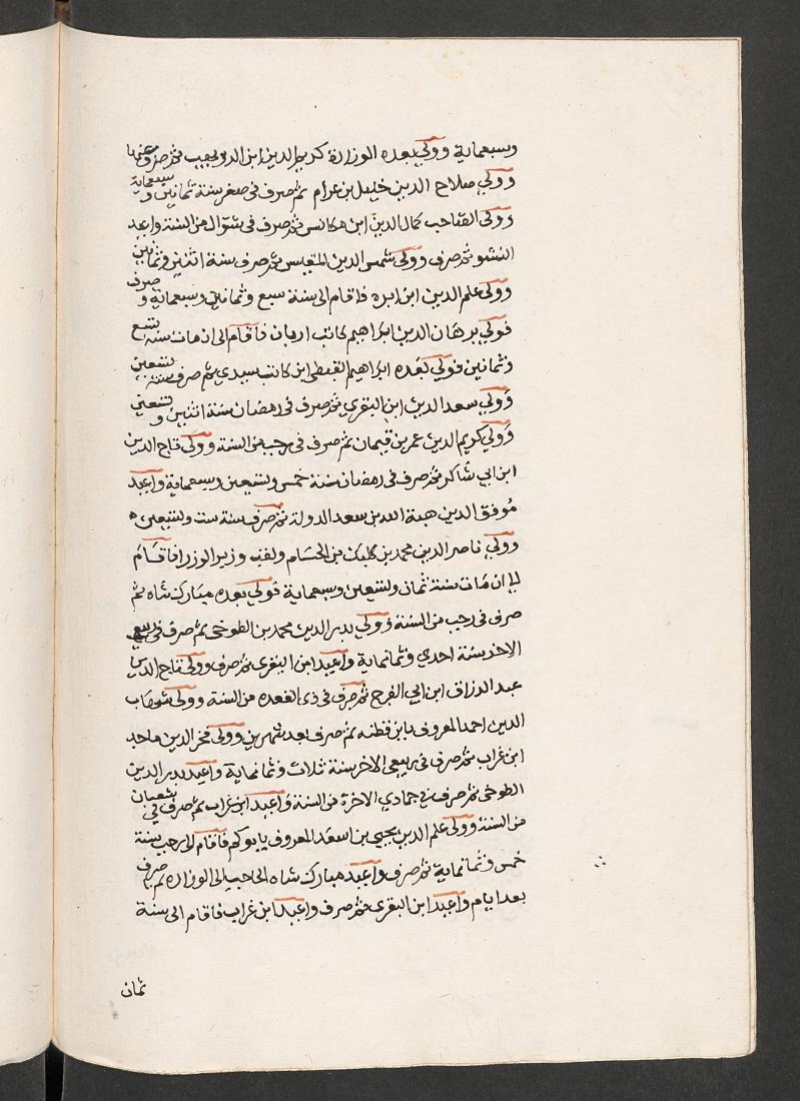 وسبعماية وولي بعده الوزارة كريم الدين ابن الرويهب ثم صرف عنها
وولي صلاح الدين خليل بن عرام ثم صرف في صفر سنة ثمانين وسبعماية
وولى الصاحب كمال الدين ابن مكانس ثم صرف في شوال من السنة واعيد
النشو ثم صرف وولى شمس الدين المقيسي ثم صرف سنة اثنين وثمانين
وولى علم الدين ابن ابره فاقام الى سنة سبع وثمانين وسبعماية وصرف
فولي برهان الدين ابراهيم كاتب اربان فاقام الى ان مات سنة تسع
وثمانين فولي بعده ابراهيم القبطي ابن كاتب سيدي ثم صرف سنة تسعين
وولي سعد الدين ابن البقري ثم صرف في رمضان سنة اثنين وتسعين
وولي كريم الدين عمر بن قيمان ثم صرف في رجب من السنة وولى تاج الدين
ابن ابي شاكر ثم صرف في رمضان سنة خمس وتسعين وسبعماية واعيد
موفق الدين هبة الله بن سعد الدولة ثم صرف سنة ست وتسعين
وولي ناصر الدين محمد بن كلبك بن الحسام ولقب وزير الوزرا فاقام
الى ان مات سنة ثمان وتسعين وسبعماية فولي بعده مبارك شاه ثم
صرف في رجب من السنة وولي بدر الدين محمد بن الطوخى ثم صرف في ربيع
الاخر سنة احدي وثمانماية واعيد ابن البقرى ثم صرف وولى تاج الدين
عبد الرزاق ابن ابي الفرج ثم صرف في ذى القعده من السنة وولى شهاب
الدين احمد المعروف بابن قطنه ثم صرف بعد شهرين وولى فخر الدين ماجد
ابن غراب ثم صرف في ربيعى الاخر سنة ثلاث وثمانماية واعيد بدر الدين
الطوخى ثم صرف في جمادي الاخرة من السنة واعيد ابن غراب ثم صرف في شعبان
من السنة وولى علم الدين يحيى بن اسعد المعروف بابو كم فاقام الى رجب سنة
خمس وثمانماية ثم صرف واعيد مبارك شاه الحاجب الى الوزاره ثم صرف
بعد ايام واعيد ابن البقرى ثم صرف واعيد ابن غراب فاقام الى سنة
ثمان